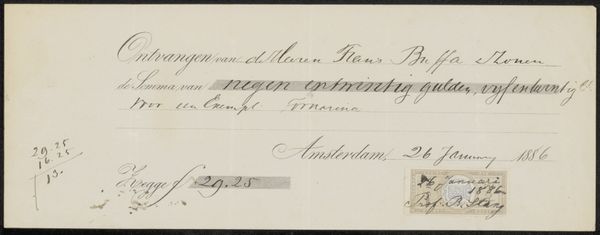 Ontvangen van d. Heeren Frans Buffa & Zonen
de Somma van negen entwintig gulden, vyfentwintig cs.
voor een Exempl. Fornarina
Amsterdam, 26 January 1886
Zegge f 29.25
29.25
16.25
13.
26 Januari
1886
Prof. B. Stang